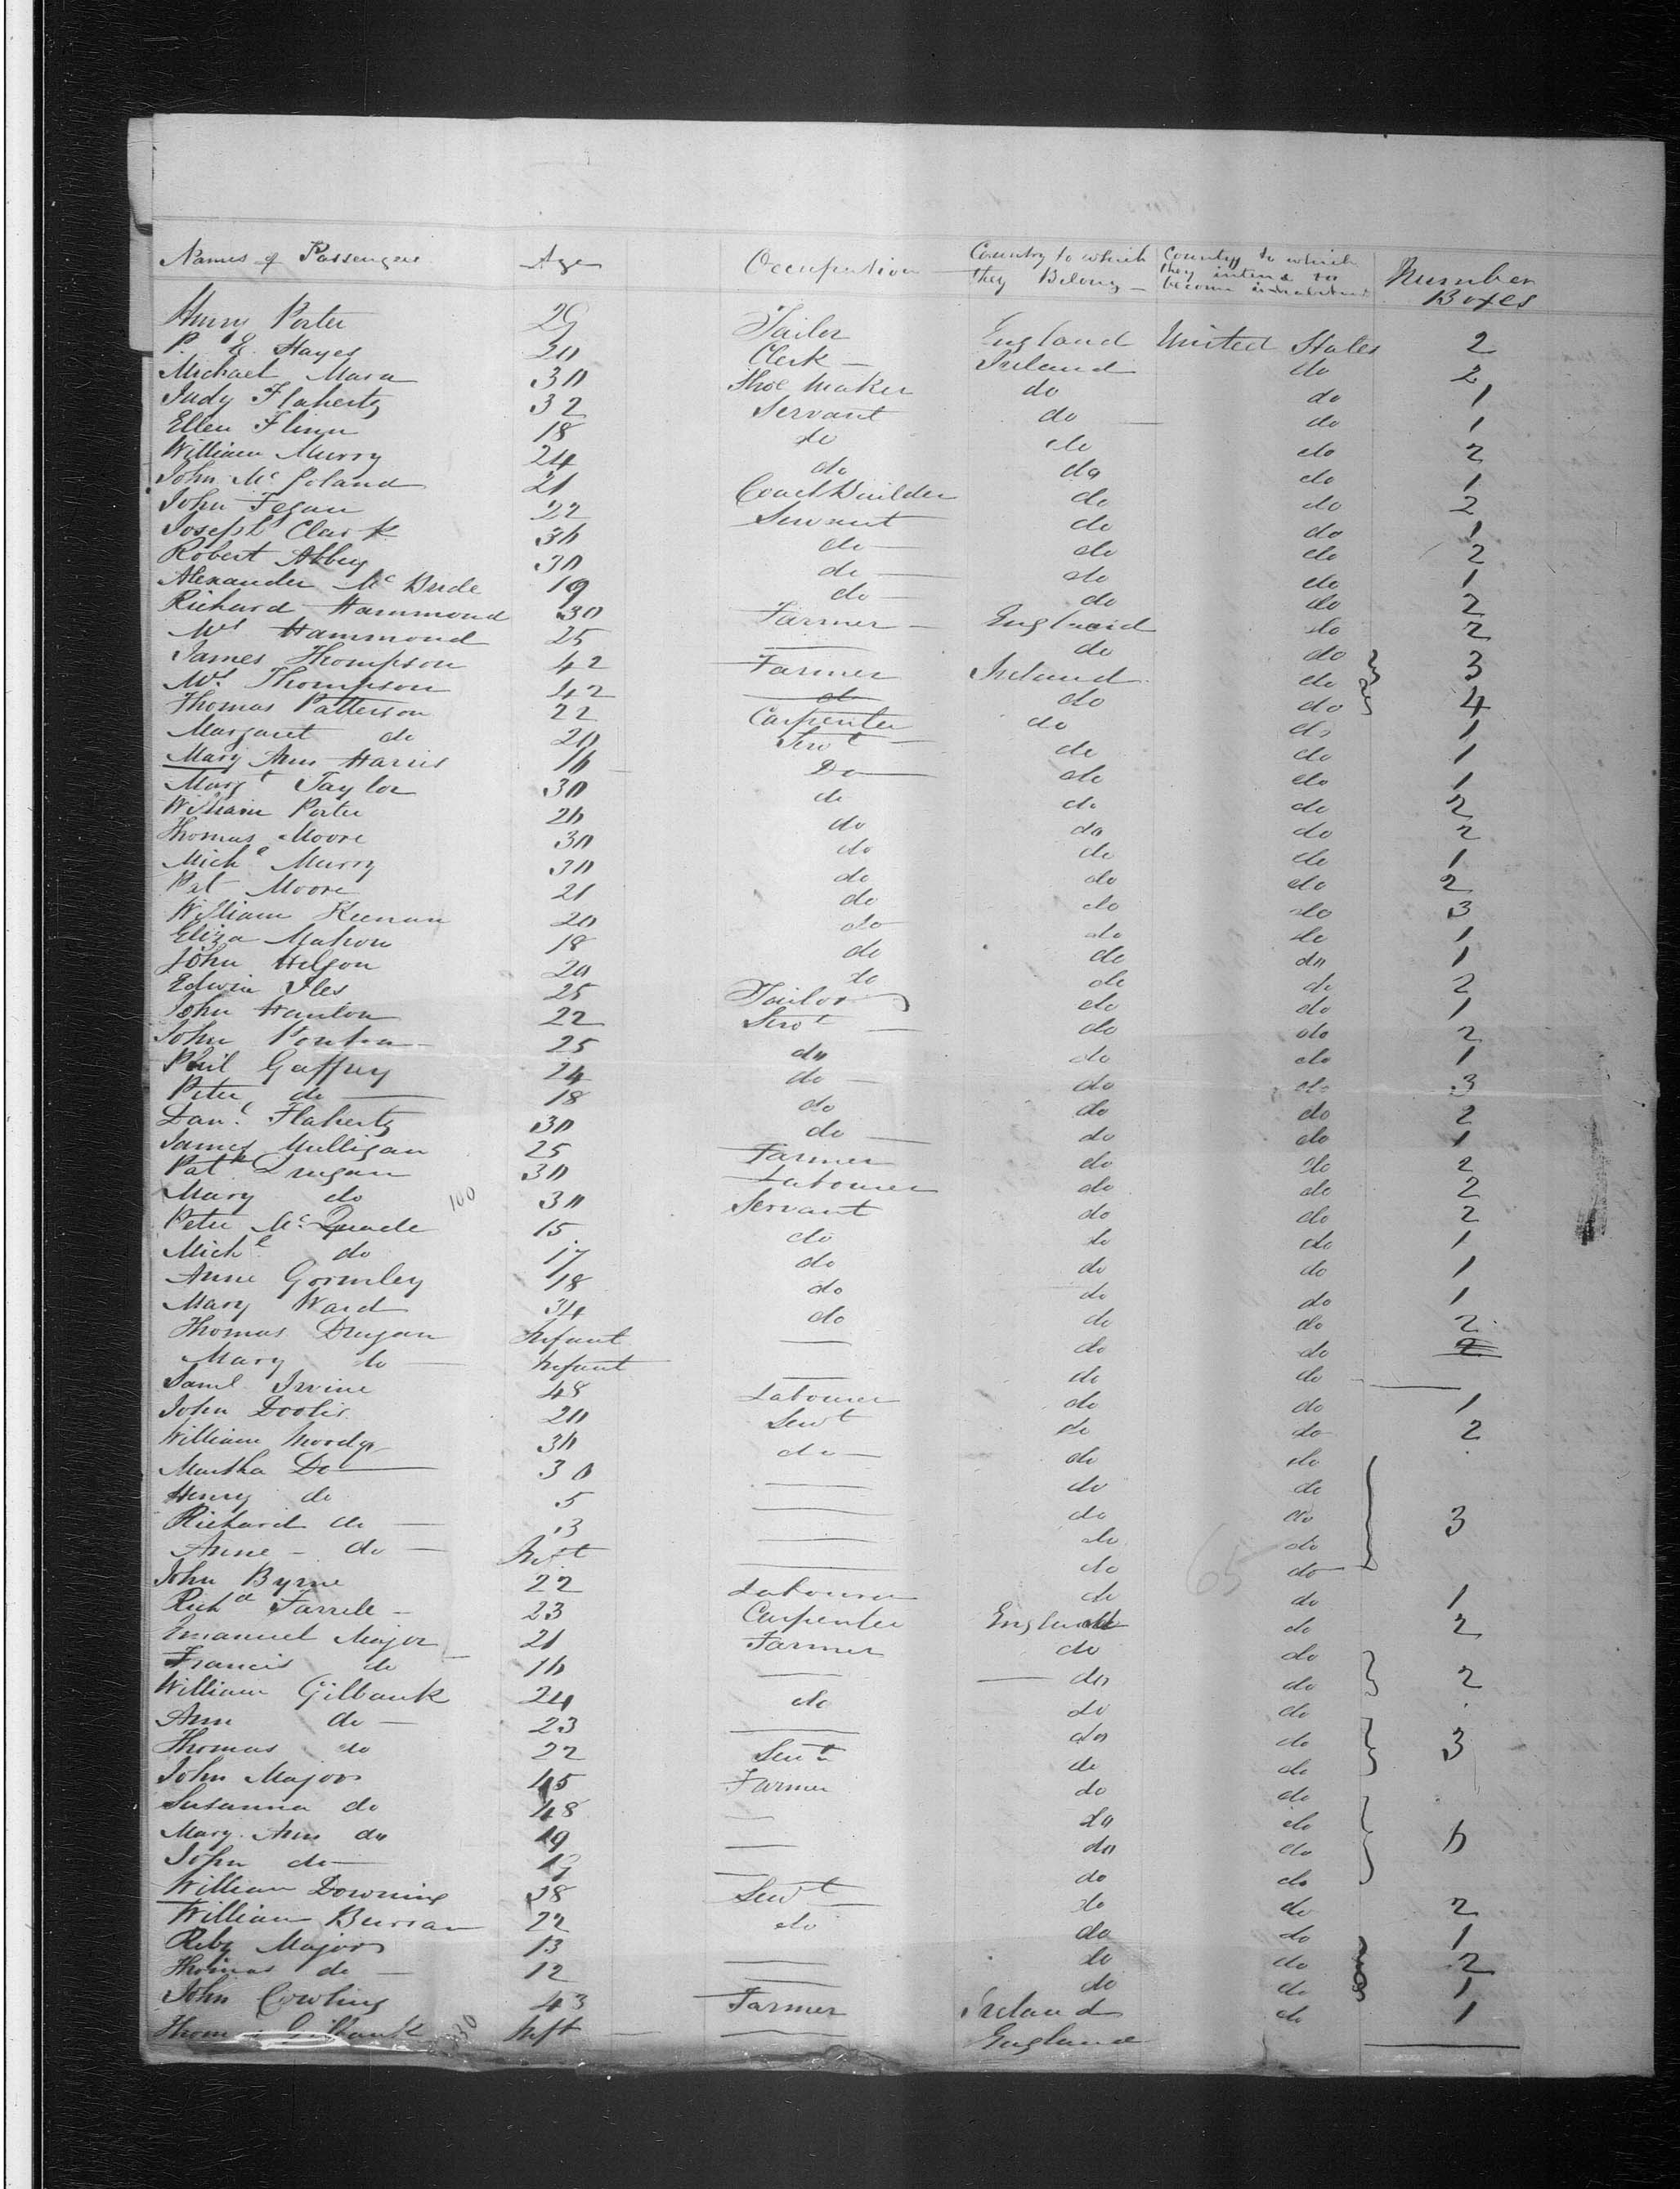 Names of Passengers Age Occupation Country to which they Belong Country to which they intend to become inhabitants Number Boxes
Henry Porter 29 Tailor England United States 2
P. Hayes 30 Clerk Ireland do 2
Michael Mara 30 Shoe Maker do do 1
Judy Flaherty 32 Servant do do 1
Ellen Flinn 18 do do do 2
William Murry 24 do do do 1
John Mc Goland 21 Coach Builder do do 2
John Fegan 22 Servant do do 1
Joseph Clark 36 do do do 2
Robert Abbey 30 do do do 1
Alexander Mc Bride 19 do do do 2
Richard Hammond 30 Farmer England do 2
Mrs Hammond 25 do do
James Thompson 42 Farmer Ireland do 3
Mrs Thompson 42 do do do 4
Thomas Patterson 22 Carpenter do do 1
Margaret do 20 Servt do do 1
Mary Ann Harris 16 Do do do 1
Margt Taylor 30 do do do 2
William Porter 26 do do do 2
Thomas Moore 30 do do do 1
Michl Murry 30 do do do 2
Pat Moore 21 do do do 3
William Keenan 20 do do do 1
Eliza Mahon 18 do do do 1
John 20 do do do 2
Edwin Iles 25 Tailor do do 1
John Hanlon 22 Servt do do 2
John 25 do do do 1
Phil Gaffney 24 do do do 3
Peter do 18 do do do 2
Danl Flaherty 30 do do do 1
James Mulligan 25 Farmer do do 2
Patk Drugan 30 Labourer do do 2
Mary do 100 30 Servant do do 2
Peter Mc Quade 15 do do do 1
Michl do 17 do do do 1
Anne Gormley 18 do do do 1
Mary Ward 34 do do do 2
Thomas Drugan Infant do do 2
Mary do Infant do do
Saml Irvine 48 Labourer do do 1
John 20 Servt do do 2
William 36 do do do
Martha Do 30 do do
Henry do 5 do do
Richard do 3 do do 3
Anne do Inft do do
John Byrne 22 Labourer do do 1
Richd Farrele 23 Carpenter England do 2
Emanuel Major 21 Farmer do do
Francis do 16 do do 2
William Gilbank 24 do do do
Ann do 23 do do
Thomas do 22 Servt do do 3
John Majors 45 Farmer do do
Susanna do 48 do do
Mary Ann do 19 do do 6
John do do do
William Downing 38 Servt do do 2
William 22 do do do 1
Majors 13 do do 2
Thomas do 12 do do 1
John Cowling 43 Farmer Ireland do 1
Gilbank Inft England
65